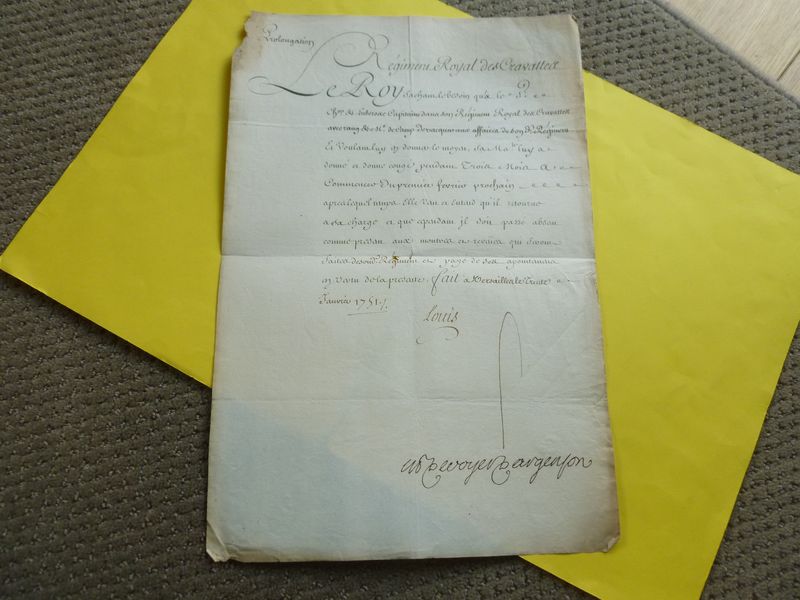 Prolongation
Régiment Royal des Cravattes
Le Roy sachant le besoin qu'a le S.r
Ch.er de Capitaine dans son Régiment Royal des Cravattes
avec rang de M.e de Camp de vaquer aux affaires de son d. Régiment
Et Voulant luy en donner le moyen, Sa Ma.té luy a
donné et donne congé pendant Trois Mois a
Commencer du premier fevrier prochain
apres lequel temps Elle Veut et Entend qu'il retourne
a sa charge et que cependant il soit passé absent
comme present aux montres et reveues qui seront
faites de son d. Régiment et payé de ses apointemens
en Vertu de la presente. fait a Versailles le Trente
Janvier 1751.
Louis
M P De voyer D argenson